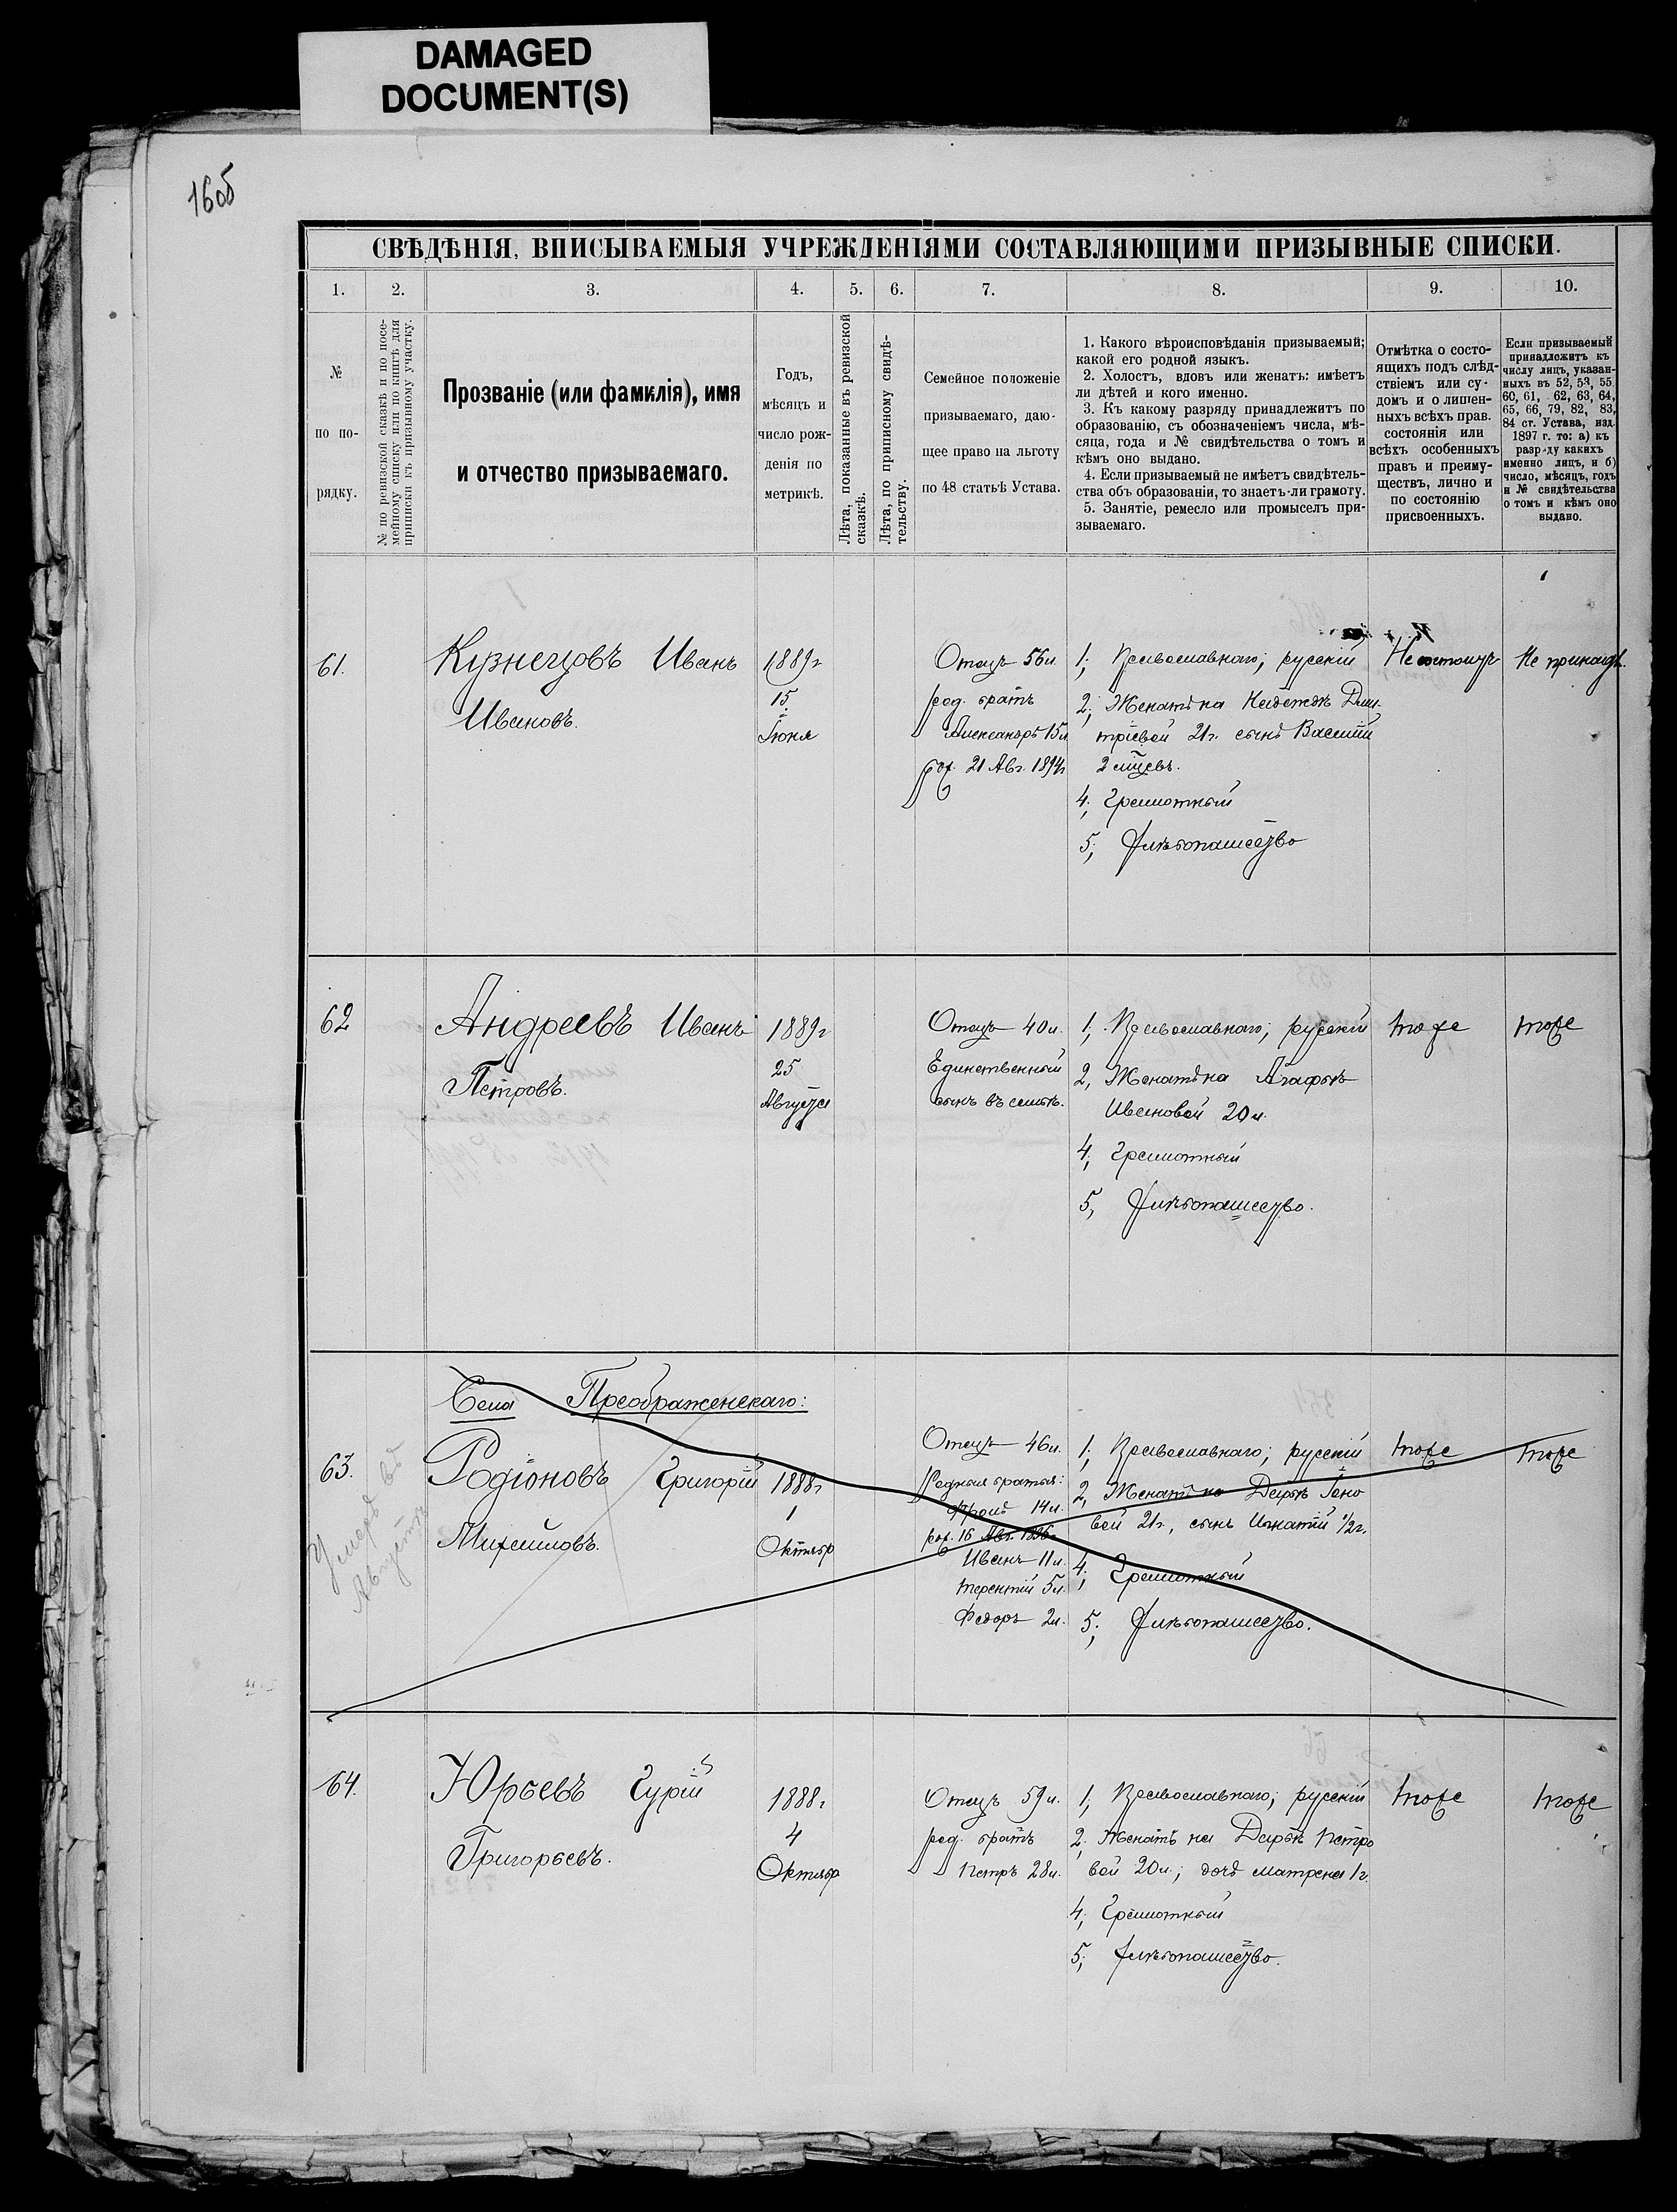 DAMAGED
DOCUMENT(S)
16об
СВѢДѢНІЯ, ВПИСЫВАЕМЫЯ УЧРЕЖДЕНІЯМИ СОСТАВЛЯЮЩИМИ ПРИЗЫВНЫЕ СПИСКИ.
1. 2. 3. 4. 5. 6. 7. 8. 9. 10.
№
по по-
рядку.
№ по ревизской сказкѣ и по посе-
мейному списку или по книгѣ для
приписки къ призывному участку.
Прозваніе (или фамилія), имя
и отчество призываемаго.
Годъ,
мѣсяцъ и
число рож-
денія по
метрикѣ.
Лѣта, показанные въ ревизской
сказкѣ.
Лѣта, по приписному свидѣ-
тельству.
Семейное положеніе
призываемаго, даю-
щее право на льготу
по 48 статьѣ Устава.
1. Какого вѣроисповѣданія призываемый;
какой его родной языкъ.
2. Холостъ, вдовъ или женатъ: имѣетъ
ли дѣтей и кого именно.
3. Къ какому разряду принадлежитъ по
образованію, съ обозначеніемъ числа, мѣ-
сяца, года и № свидѣтельства о томъ и
кѣмъ оно выдано.
4. Если призываемый не имѣетъ свидѣтель-
ства объ образованіи, то знаетъ-ли грамоту.
5. Занятіе, ремесло или промыселъ при-
зываемаго.
Отмѣтка о состо-
ящихъ подъ слѣд-
ствіемъ или су-
домъ и о лишен-
ныхъ всѣхъ прав.
состоянія или
всѣхъ особенныхъ
правъ и преиму-
ществъ, лично и
по состоянію
присвоенныхъ.
Если призываемый
принадлежитъ къ
числу лицъ, указан-
ныхъ въ 52, 53, 55,
60, 61, 62, 63, 64,
65, 66, 79, 82, 83,
84 ст. Устава, изд.
1897 г. то: а) къ
разряду какихъ
именно лицъ, и б)
число, мѣсяцъ, годъ
и № свидѣтельства
о томъ и кѣмъ оно
выдано.
61.
Кузнецовъ Иванъ
Ивановъ.
1889г
15
Іюня
Отецъ 56л.
род. братъ
Александръ 15л
рож. 21 Авг. 1894г
1; Православнаго; русскій
2; Женатъ на Надеждѣ Дми-
тріевой 21г. сынъ Василій
2 мѣцевъ.
4; Грамотный
5; Хлѣбопашество
Не состоитъ
Не принадл.
62
Андреевъ Иванъ
Петровъ.
1889г
25
Августа
Отецъ 40л.
Единственный
сынъ въ семьѣ.
1; Православнаго; русскій
2, Женатъ на Агафьѣ
Ивановой 20л.
4; Грамотный
5, Хлѣбопашество.
тоже
тоже
Села Преображенскаго:
63.
Умеръ въ
Августѣ
Родіоновъ Григорій
Михайловъ.
1888г
1
Октябр
Отецъ 46л.
Родные братья:
Фролъ 14л.
рож. 16 Авг. 1896г
Иванъ 11л.
Терентій 5л.
Федоръ 2л.
1; Православнаго; русскій
2, Женатъ на Дарьѣ
вой 21г, сынъ Игнатій 1/2г.
4; Грамотный
5; Хлѣбопашество.
тоже
тоже
64.
Юрьевъ Гурій
Григорьевъ.
1888г
4
Октябр
Отецъ 59л.
род. братъ
Петръ 28л.
1, Православнаго; русскій
2; Женатъ на Дарьѣ Петро
вой 20л.; дочь Матрена 1г.
4; Грамотный
5; Хлѣбопашество.
тоже
тоже